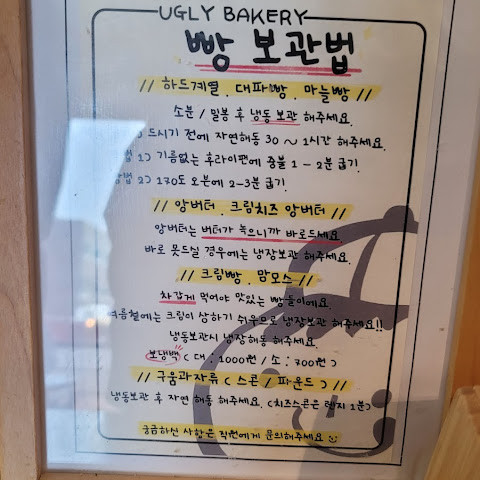 UGLY BAKERY
빵 보관법
// 하드계열 . 대파빵 . 마늘빵 //
소분 / 밀봉 후 냉동 보관 해주세요.
드시기 전에 자연해동 30 ~ 1시간 해주세요.
1) 기름없는 후라이팬에 중불 1 - 2분 굽기
방법 2) 170도 오븐에 2-3분 굽기.
// 앙버터 . 크림치즈 앙버터 //
앙버터는 버터가 녹으니까 바로드세요.
바로 못드실 경우에는 냉장보관 해주세요.
// 크림빵 . 맘모스 //
차갑게 먹어야 맛있는 빵들이에요.
여름철에는 크림이 상하기 쉬우므로 냉장보관 해주세요!!
냉동보관시 냉장해동 해주세요.
보냉백 ( 대 : 1000원 / 소 : 700원 )
// 구움과자류 ( 스콘 / 파운드 ) //
냉동보관 후 자연 해동 해주세요. (치즈스콘은 렌지 1분)
궁금하신 사항은 직원에게 문의해주세요